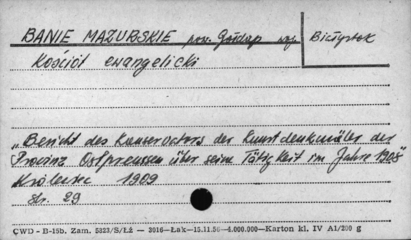 BANIE MAZURSKIE pow. Gołdap woj. Białystok
Kościół ewangelicki
„Bericht des Konservators der Kunstdenkmäler der
Provinz Ostpreussen über seine Tätigkeit im Jahre 1908"
Królewiec 1909
str. 29
CWD - B-15b. Zam. 5823/S/Łż — 3016—Łak—15.11.56—4.000.000—Karton kl. IV A1/200 g